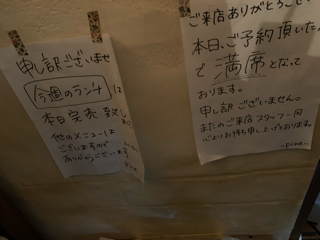 申し訳ございませ
今週のランチは
本日完売致し
他のメニューは
ございますので
ありがとうございます
ご来店ありがとうござ
本日、ご予約頂いた
で満席となって
おります。
申し訳ございません。
またのご来店スタッフ一同
心よりお待ち申し上げております。